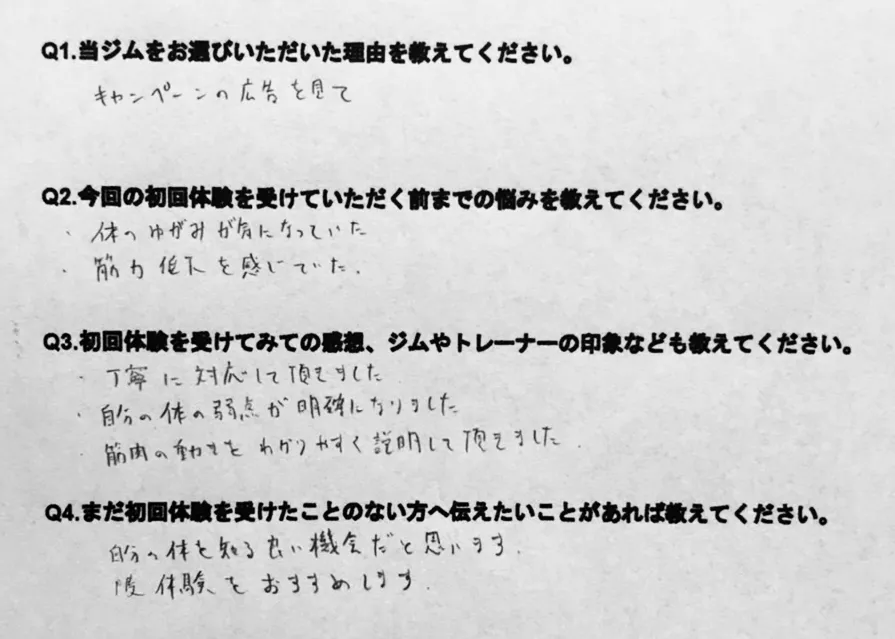 Q1.当ジムをお選びいただいた理由を教えてください。
キャンペーンの広告を見て
Q2.今回の初回体験を受けていただく前までの悩みを教えてください。
・体のゆがみが気になっていた
・筋力低下を感じていた.
Q3.初回体験を受けてみての感想、ジムやトレーナーの印象なども教えてください。
・丁寧に対応して頂きました
・自分の体の弱点が明確になりました
・筋肉の動きをわかりやすく説明して頂きました.
Q4.まだ初回体験を受けたことのない方へ伝えたいことがあれば教えてください。
自分の体を知る良い機会だと思います.
体験をおすすめします.